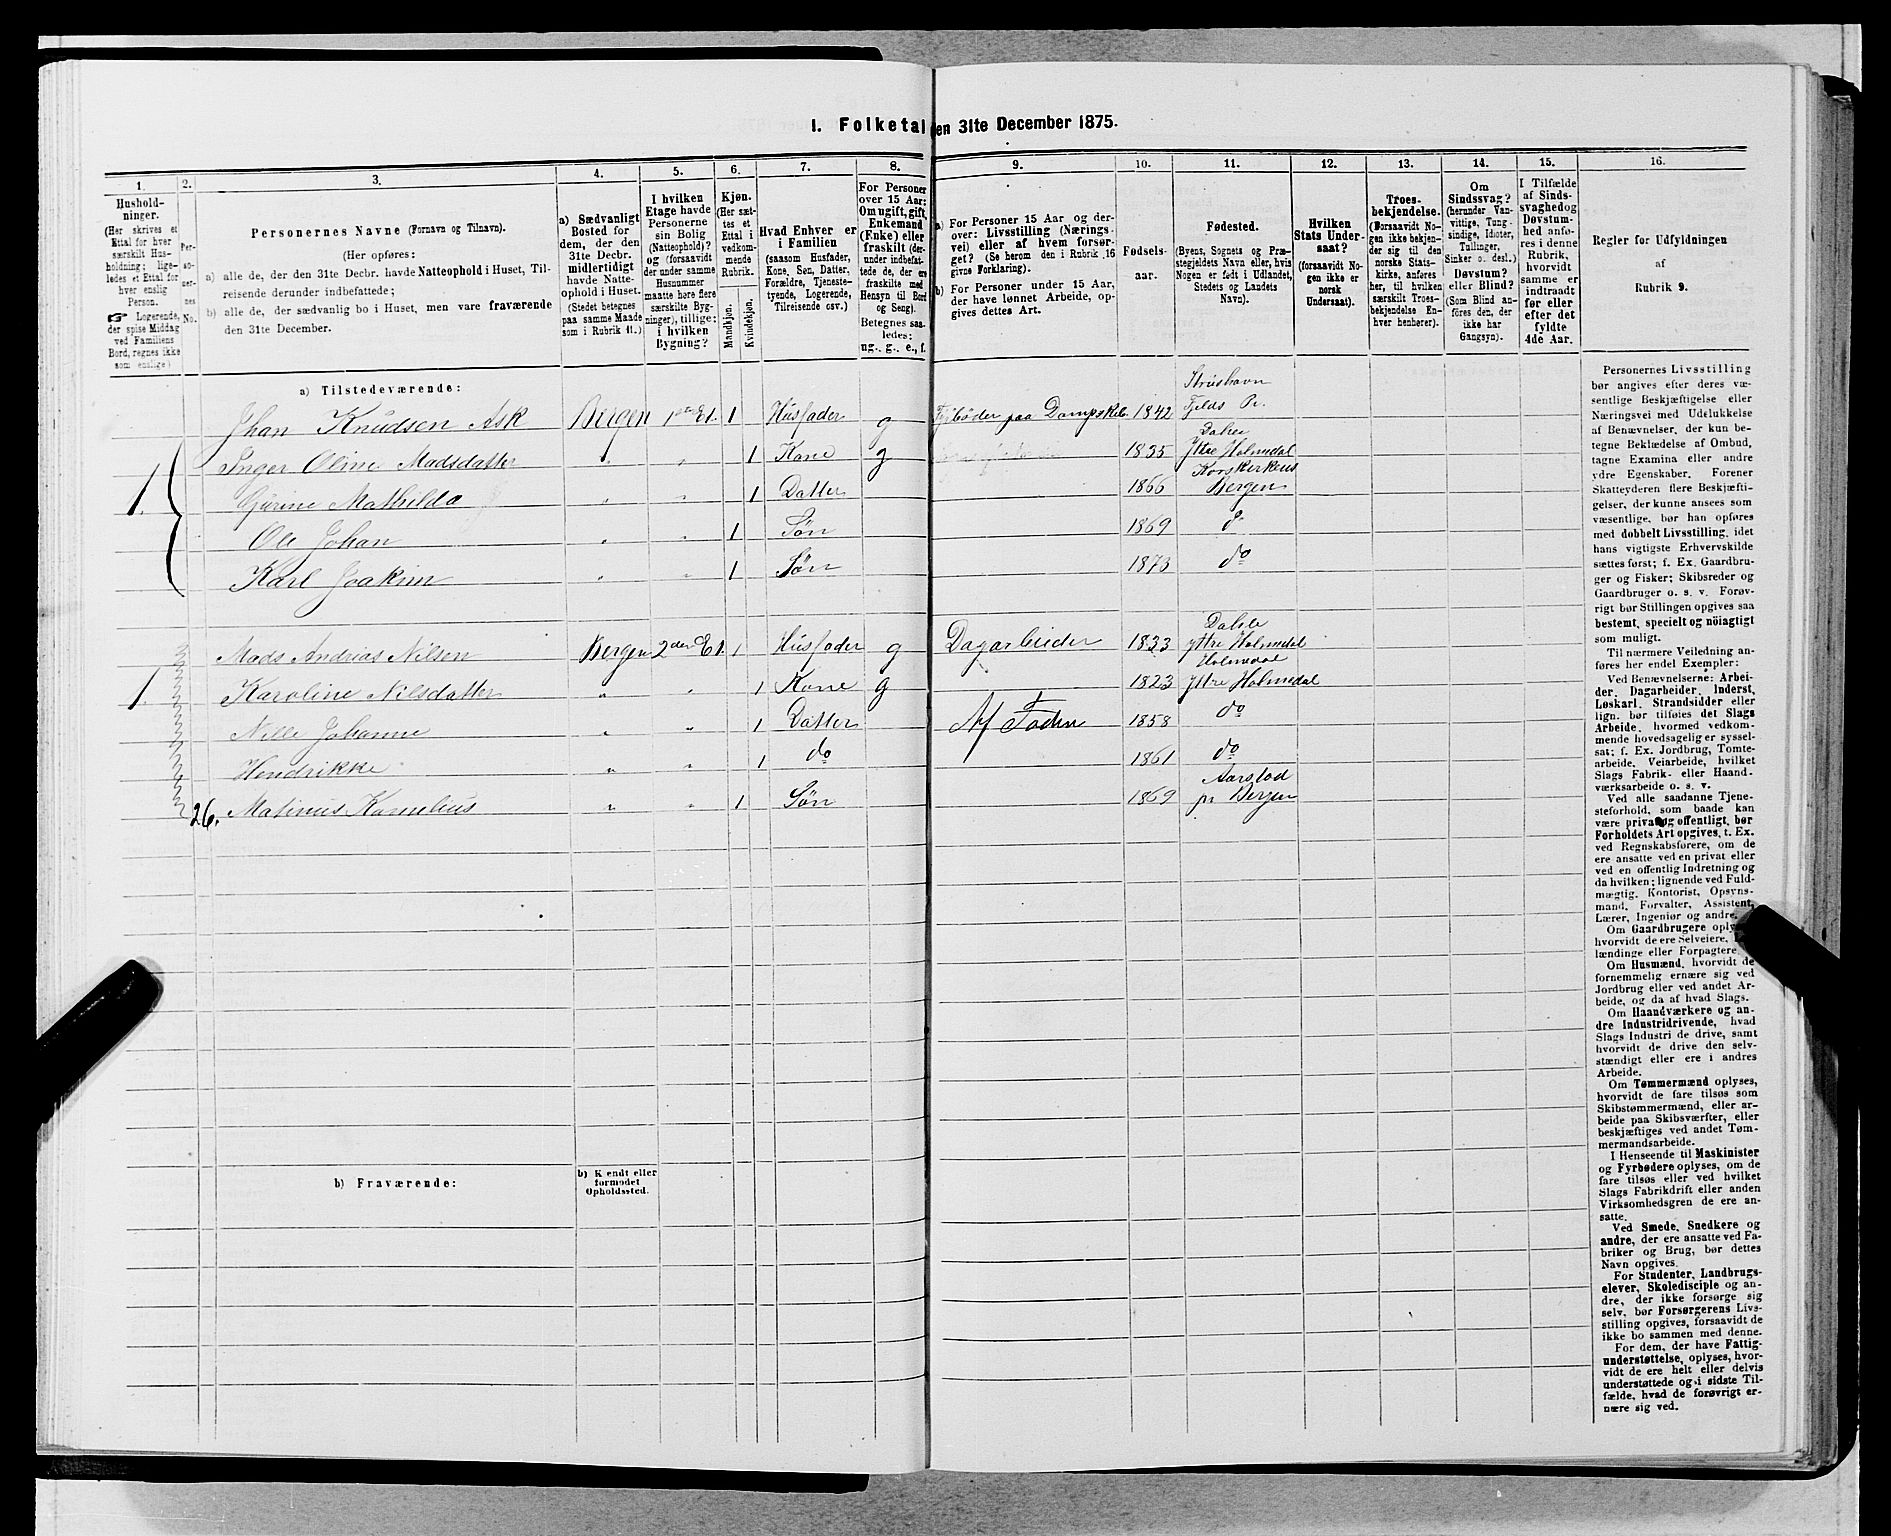 I. Folketal den 31te December 1875.
1. 2. 3. 4. 5. 6. 7. 8. 9. 10. 11. 12. 13. 14. 15. 16.
Hushold-
ninger.
(Her skrives et
Ettal for hver
særskilt Hus-
holdning; lige-
ledes et Ettal for
hver enslig
Person.
☞ Logerende,
der spise Middag
ved Familiens
Bord, regnes ikke
som enslige)
Per-
so-
ner-
nes
No.
Personernes Navne (Fornavn og Tilnavn).
(Her opføres:
a) alle de, der den 31te Decbr. havde Natteophold i Huset, Til-
reisende derunder indbefattede;
b) alle de, der sædvanlig bo i Huset, men vare fraværende
den 31te December.
a) Sædvanligt
Bosted for
dem, der den
31te Decbr.
midlertidigt
havde Natte-
ophold i Huset.
(Stedet betegnes
paa samme Maade
som i Rubrik 11.)
I hvilken
Etage havde
Personerne
sin Bolig
(Natteophold)?
og (forsaavidt
der under samme
Husnummer
maatte høre flere
særskilte Byg-
ninger), tillige:
i hvilken
Bygning?
Kjøn.
(Her sæt-
tes et
Ettal i
vedkom-
mende
Rubrik.
Mandkjøn.
Kvindekjøn.
Hvad Enhver er
i Familien
(saasom Husfader,
Kone, Søn, Datter,
Forældre, Tjeneste-
tyende, Logerende,
Tilreisende osv.)
For Personer
over 15 Aar:
Om ugift, gift,
Enkemand
(Enke) eller
fraskilt (der-
under indbefat-
tede de, der ere
fraskilte med
Hensyn til Bord
og Seng).
Betegnes saa-
ledes:
ug., g., e., f.
a) For Personer 15 Aar og der-
over: Livsstilling (Nærings-
vei) eller af hvem forsør-
get? (Se herom den i Rubrik 16
givne Forklaring).
b) For Personer under 15 Aar,
der have lønnet Arbeide, op-
gives dettes Art.
Fødsels-
aar.
Fødested.
(Byens, Sognets og Præ-
stegjeldets Navn eller, hvis
Nogen er født i Udlandet,
Stedets og Landets
Navn).
Hvilken
Stats Under-
saat?
(forsaavidt No-
gen ikke er
norsk
Undersaat).
Troes-
bekjendelse.
(Forsaavidt No-
gen ikke bekjen-
der sig til den
norske Stats-
kirke, anføres
her, til hvilken
særskilt Troes-
bekjendelse En-
hver henhører).
Om
Sindssvag?
(herunder Van-
vittige, Tung-
sindige, Idioter,
Tullinger,
Sinker o. desl.)
Døvstum?
eller Blind?
(Som Blind an-
føres den, der
ikke har
Gangsyn).
I Tilfælde
af Sinds-
svaghed og
Døvstum-
hed anfø-
res i denne
Rubrik,
hvorvidt
samme er
indtraadt
før eller
efter det
fyldte
4de Aar.
Regler for Udfyldningen
af
Rubrik 9.
a) Tilstedeværende:
Jhan Knudsen Ask Bergen 1ste Et. 1 Husfader g Fyrbøder paa Dampskib. 1842 Strushavn Fjelds Pr.
1. Inger Oline Madsdatter " " 1 Kone g 1835 Dahle Yttre Holmedal
Gjurine Mathilda " " 1 Datter 1866 Korskirkens Bergen
Ole Johan " " 1 Søn 1869 do
Karl Joakim " " 1 Søn 1873 do
Mads Andrias Nilsen Bergen 2den Et. 1 Husfader g Dagarbeider 1833 Dahle Yttre Holmedal
1. Karoline Nilsdatter " " 1 Kone g 1823 Holmedal Yttre Holmedal
Nille Johanne " " 1 Datter Af 1858 do
Hendrikke " " 1 do 1861 do
26. Matinus Kornelius " " 1 Søn 1869 Aarstad pr Bergen
b) Fraværende:
b) Kendt eller
formodet
Opholdssted.
Personernes Livsstilling
bør angives efter deres væ-
sentlige Beskjæftigelse eller
Næringsvei med Udelukkelse
af Benævnelser, der kun be-
tegne Beklædelse af Ombud,
tagne Examina eller andre
ydre Egenskaber. Forener
Skatteyderen flere Beskjæfti-
gelser, der kunne ansees som
væsentlige, bør han opføres
med dobbelt Livsstilling, idet
hans vigtigste Erhvervskilde
sættes først; f. Ex. Gaardbru-
ger og Fisker; Skibsreder og
Gaardbruger o. s. v. Forøv-
rigt bør Stillingen opgives saa
bestemt, specielt og nøiagtigt
som muligt.
Til nærmere Veiledning an-
føres her endel Exempler:
Ved Benævnelserne: Arbei-
der, Dagarbeider, Inderst,
Løskarl, Strandsidder eller
lign. bør tilføies det Slags
Arbeide, hvormed vedkom-
mende hovedsagelig er syssel-
sat; f. Ex. Jordbrug, Tomte-
arbeide, Veiarbeide, hvilket
Slags Fabrik- eller Haand-
værksarbeide o. s. v.
Ved alle saadanne Tjene-
steforhold, som baade kan
være privat og offentligt, bør
Forholdets Art opgives, t. Ex.
ved Regnskabsførere, om de
ere ansatte ved en privat eller
ved en offentlig Indretning og
da hvilken; lignende ved Fuld-
mægtig, Kontorist, Opsyns-
mand, Forvalter, Assistent,
Lærer, Ingeniør og andre.
Om Gaardbrugere oply-
hvorvidt de ere Selveiere,
lændinge eller Forpagtere.
Om Husmænd, hvorvidt de
fornemmelig ernære sig ved
Jordbrug eller ved andet Ar-
beide, og da af hvad Slags.
Om Haandværkere og an-
dre Industridrivende, hvad
Slags Industri de drive, samt
hvorvidt de drive den selv-
stændigt eller ere i andres
Arbeide.
Om Tømmermænd oplyses,
hvorvidt de fare tilsøs som
Skibstømmermænd, eller ar-
beide paa Skibsværfter, eller
beskjæftiges ved andet Tøm-
mermandsarbeide.
I Henseende til Maskinister
og Fyrbødere oplyses, om de
fare tilsøs eller ved hvilket
Slags Fabrikdrift eller anden
Virksomhedsgren de ere an-
satte.
Ved Smede, Snedkere og
andre, der ere ansatte ved Fa-
briker og Brug, bør dettes
Navn opgives.
For Studenter, Landbrugs-
elever, Skoledisciple og an-
dre, der ikke forsørge sig
selv, bør Forsørgerens Livs-
stilling opgives, forsaavidt de
ikke bo sammen med denne.
For dem, der have Fattig-
understøttelse, oplyses, hvor-
vidt de ere helt eller delvis
understøttede og i sidste Til-
fælde, hvad de forøvrigt er-
nære sig ved.